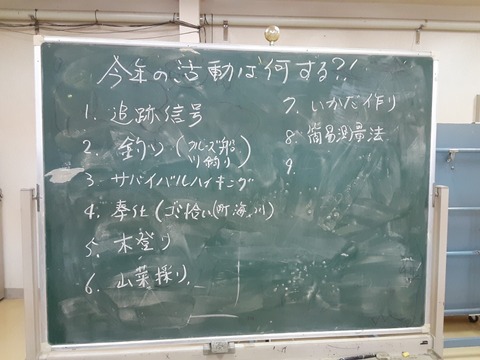 今年の活動は何する?!
1. 追跡信号
2. 釣り (クルーズ船
川釣り)
3. サバイバルハイキング
4. 奉仕 (ゴミ拾い(町、海、川)
5. 木登り
6. 山菜採り
7. いかだ作り
8. 簡易測量法
9.